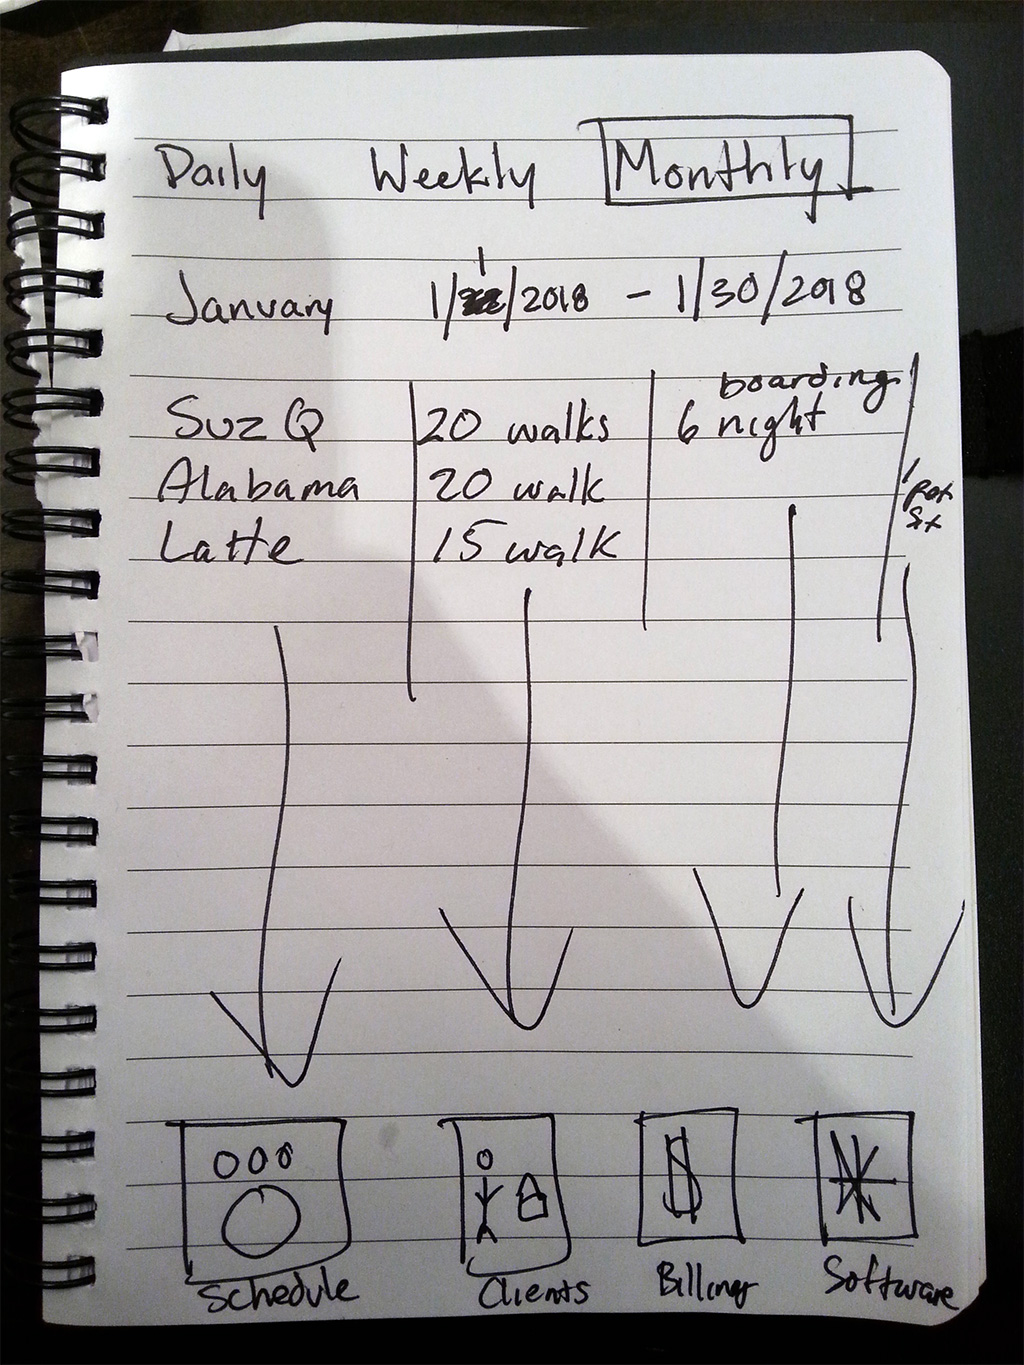 Daily Weekly Monthly
January 1/1/2018 - 1/30/2018
boarding
Suz Q 20 walks 6 night
Alabama 20 walk
Latte 15 walk
$
Schedule Clients Billing Software